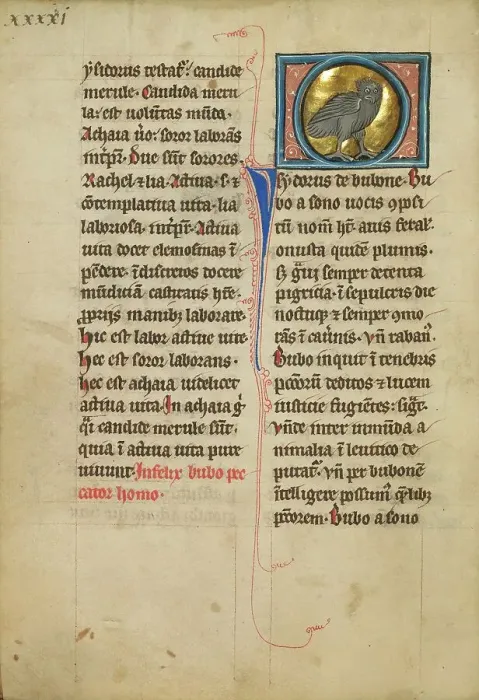 XXXXI
ysidorus testat. candide
merule. Candida meru
la: est volũtas mũda.
Achaia v̊o: soror laborãs
int̃pr̃. Due sũt sorores.
Rachel ⁊ lia. Actiua .s. ⁊
cõtemplatiua uita. lia
laboriosa. int̃pr̃. Actiua
uita docet elemosinas ĩ
pẽdere. ĩdiscretos docere
mũdiciam castitatis hr̃e.
ꝓprijs manib; laborare.
hic est labor actiue uite.
hec est soror laborans.
hec est achaia uidelicet
actiua uita. In achaia g̊
qͥ candide merule sũt.
quia ĩ actiua uita pure
uiuunt. Infelix bubo pec
cator homo.
Ysydorus de bubone. Bu
bo a sono uocis ꝯposi
tũ nom̃ ht̃. auis feral.
onusta quidẽ plumis.
s; gͣui semper detenta
pigricia. ĩ sepulcris die
noctuqꝫ ⁊ semper ꝯmo
rãs ĩ cauernis. vñ raban.
Bubo inquit ĩ tenebris
pccõrũ deditos ⁊ lucem
iusticie fugiẽtes: sigt.
Vñde inter inmũda a
nimalia ĩ leuitico de
putat̃. vñ per bubonẽ
ĩtelligere possum̃ q̃lib;
pctõrem. Bubo a sono